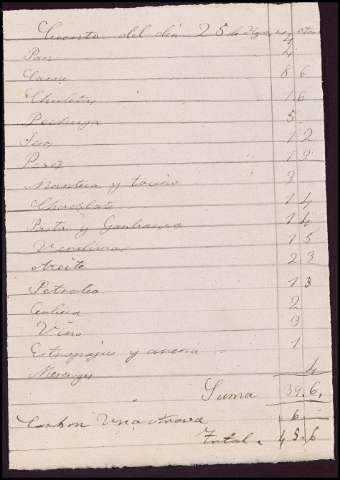 Cuenta del día 25 de
Pan 4
Carne 8 6
Chuletas 1 6
Pechuga 5
1 2
1 9
Manteca y tocino 2
Chocolate 1 4
Pasta y Garbanzos 1 4
Verduras 1 5
Aceite 2 3
Petroleo 1 3
Galleta 2
Vino 3
y arena 1
4
Suma 39 6
Carbon Una Arroba 6
Total. 45 6